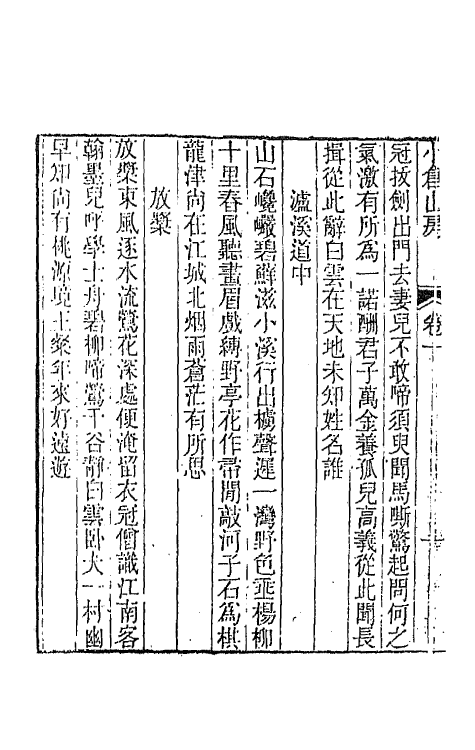 小倉山房　卷一
冠拔劍出門去妻兒不敢啼須臾聞馬嘶驚起問何之
氣激有所為一諾酬君子萬金養孤兒高義從此聞長
揖從此辭白雲在天地未知姓名誰
瀘溪道中
山石巉巖碧蘚滋小溪行出櫓聲遲一灣野色亞楊柳
十里春風聽畫眉戲縛野亭花作帚閒敲河子石為棋
龍津尚在江城北烟雨蒼茫有所思
放槳
放槳東風逐水流鶯花深處便淹留衣冠僧識江南客
翰墨兒呼學士舟碧柳啼鶯千谷靜白雲臥犬一村幽
早知尚有桃源境上粲年來好遠遊